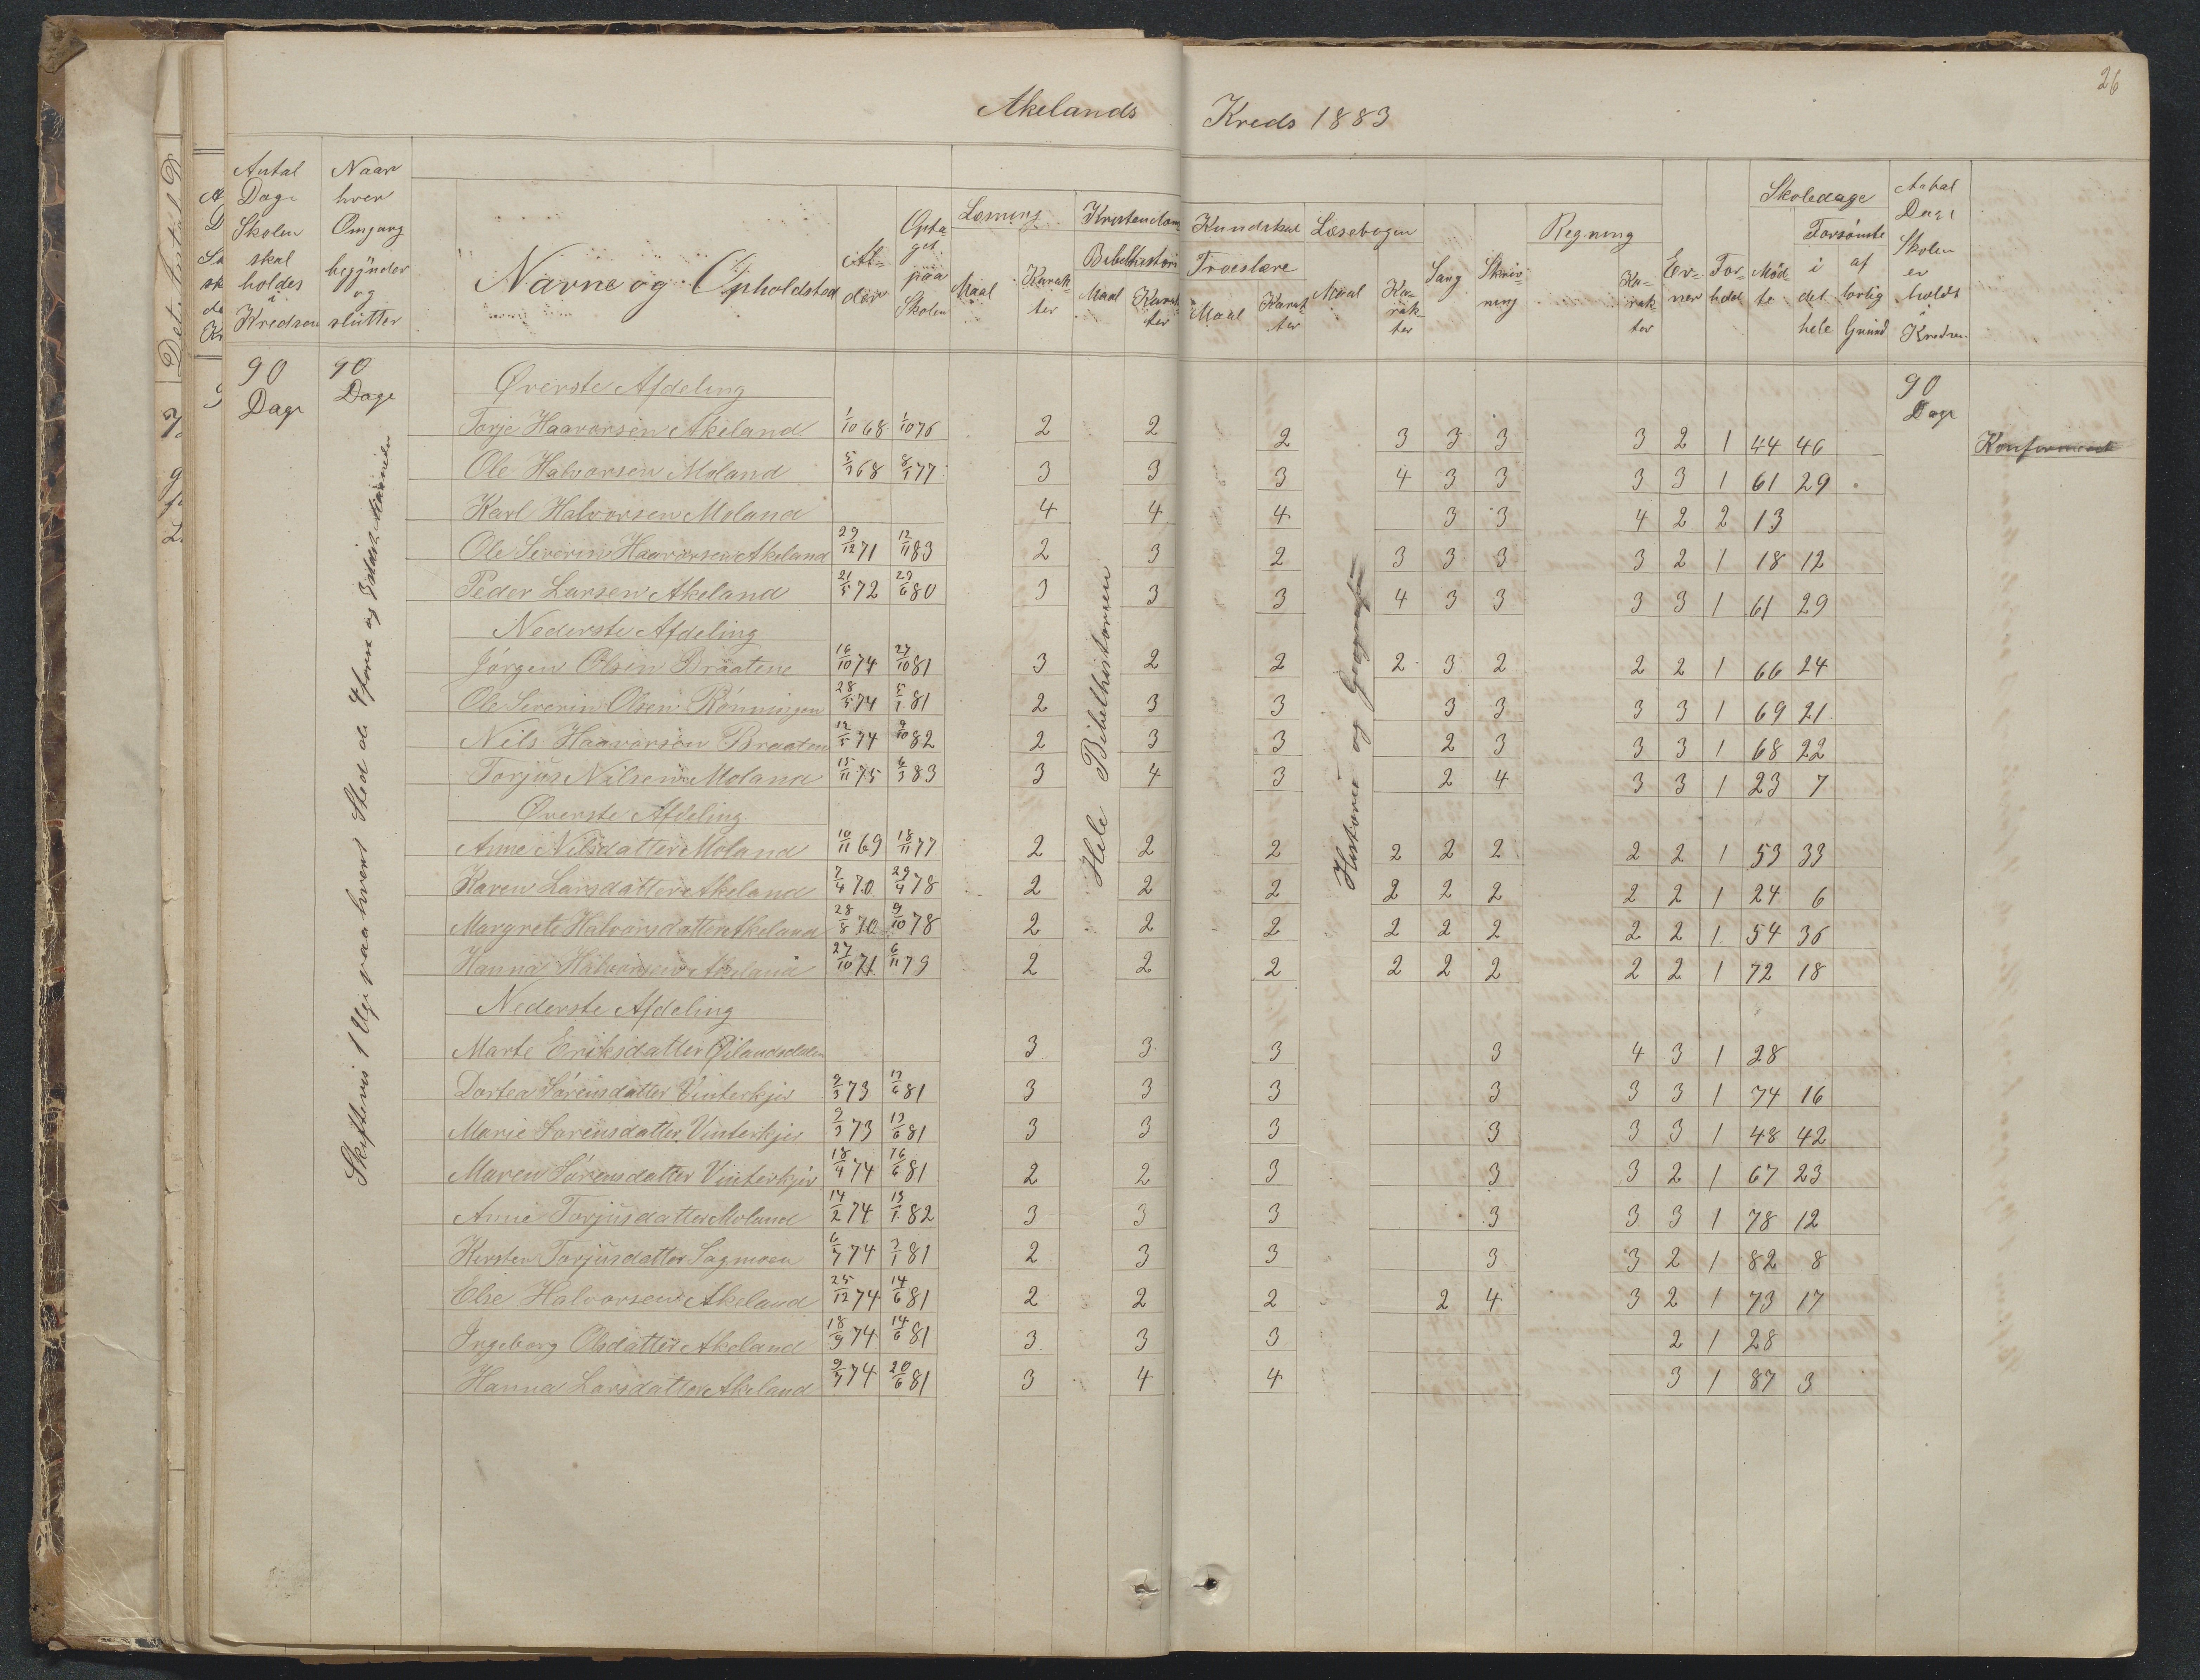 26
Akelands Kreds 1883
Antal Dage Skolen skal holdes i Kredsen
Naar hver Omgang begÿnder og slütter
Navne og Opholdsted
Al-der
Opta get paa Skolen
Læsning
Maal
Karak-ter
Kristendom Kundskab
Bibelhistori
Maal
Karak-ter
Troeslære
Maal
Karak-ter
Læsebogen
Maal
Ka-rak-ter
Sang
Skriv-ning
Regning
Ka-rak-ter
Ev-ner
For-hold
Skoledage
Mød-te
Forsömte
i det hele
af lovlig Grund
Antal Dage Skolen er holdt i Kredsen
90 Dage
90 Dage
90 Dage
Hele Bibelhistorien
Historie og Geografi
Øverste Afdeling
Torje Haavorsen Akeland 1/10 68 1/10 76 2 2 2 3 3 3 3 2 1 44 46 Konfirmeret
Ole Halvorsen Moland 5/7 68 8/1 77 3 3 3 4 3 3 3 3 1 61 29
Karl Halvorsen Moland 4 4 4 3 3 4 2 2 13
Ole Severin Haavorsen Akeland 29/12 71 12/11 83 2 3 2 3 3 3 3 2 1 18 12
Peder Larsen Akeland 21/5 72 29/6 80 3 3 3 4 3 3 3 3 1 61 29
Nederste Afdeling
Jörgen Olsen Braatene 16/10 74 27/10 81 3 2 2 2 3 2 2 2 1 66 24
Ole Severin Olsen Rönningen 28/5 74 5/1 81 2 3 3 3 3 3 3 1 69 21
Nils Haavorsen Braaten 12/5 74 9/10 82 2 3 3 2 3 3 3 1 68 22
Torjus Nilsen Moland 15/11 75 6/3 83 3 4 3 2 4 3 3 1 23 7
Øverste Afdeling
Anne Nilsdatter Moland 10/11 69 18/11 77 2 2 2 2 2 2 2 2 1 53 33
Karen Larsdatter Akeland 7/4 70 29/4 78 2 2 2 2 2 2 2 2 1 24 6
Margrete Halvorsdatter Akeland 28/8 70 9/10 78 2 2 2 2 2 2 2 2 1 54 36
Hanna Halvorsen Akeland 27/10 71 6/11 79 2 2 2 2 2 2 2 2 1 72 18
Nederste Afdeling
Marte Eriksdatter Øilandsdalen 3 3 3 3 4 3 1 28
Dortea Sörensdatter Vinterkjær 2/3 73 13/6 81 3 3 3 3 3 3 1 74 16
Marie Sörensdatter Vinterkjær 2/3 73 13/6 81 3 3 3 3 3 3 1 48 42
Maren Sörensdatter Vinterkjær 18/4 74 16/6 81 2 2 3 3 3 2 1 67 23
Anne Torjusdatter Moland 14/2 74 13/1 82 3 3 3 3 3 3 1 78 12
Kirsten Torjusdatter Sagmoen 6/7 74 3/1 81 2 3 3 3 3 2 1 82 8
Else Halvorsen Akeland 25/12 74 14/6 81 2 2 2 2 4 3 2 1 73 17
Ingeborg Olsdatter Akeland 18/9 74 14/6 81 3 3 3 2 1 28
Hanna Larsdatter Akeland 9/7 74 20/6 81 3 4 4 3 1 87 3
Skiftevis 1 Uge paa hvert Sted